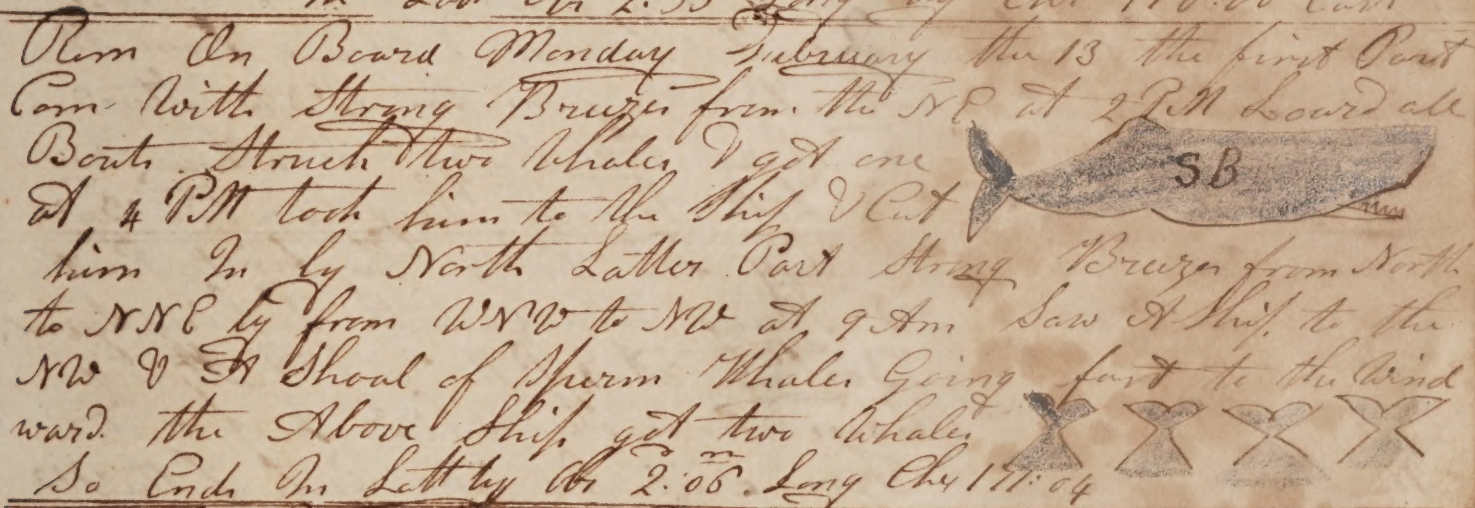 in Latt Ob 2:55 Long by Chr 170:00 East
Rem On Board Monday February the 13 the first Part
Com With Strong Breezes from the NE at 2 PM Loward all
Boats Struck two Whales & got one
SB
at 4 PM took him to the Ship & Cut
him In by North Latter Part Strong Breezes from North
to NNE by from WNW to NW at 9 Am Saw A Ship to the
NW & A Shoal of Sperm Whales Going fast to the Wind
ward the Above Ship got two Whales
So Ends In Latt by Ob 2:06 Long Chr 171:04